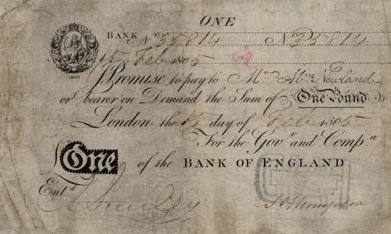 ONE
BANK No. 35814 No. 35814
15 Feb 1805
Promise to pay to Mr. Abm. Newland
or bearer on Demand the Sum of One Pound
London the 15 day of Feb 1805
For the Govr. and Compa
One of the BANK OF ENGLAND.
Entd.